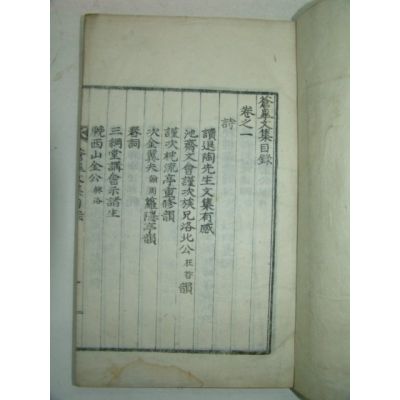 蒼巖文集目錄
卷之一
詩
讀退陶先生文集有感
池齋文會謹次族兄洛北公韻
謹次枕流亭重修韻
次金冀夫龍隱亭韻
春詞
三綱堂講會示諸生
輓西山金公